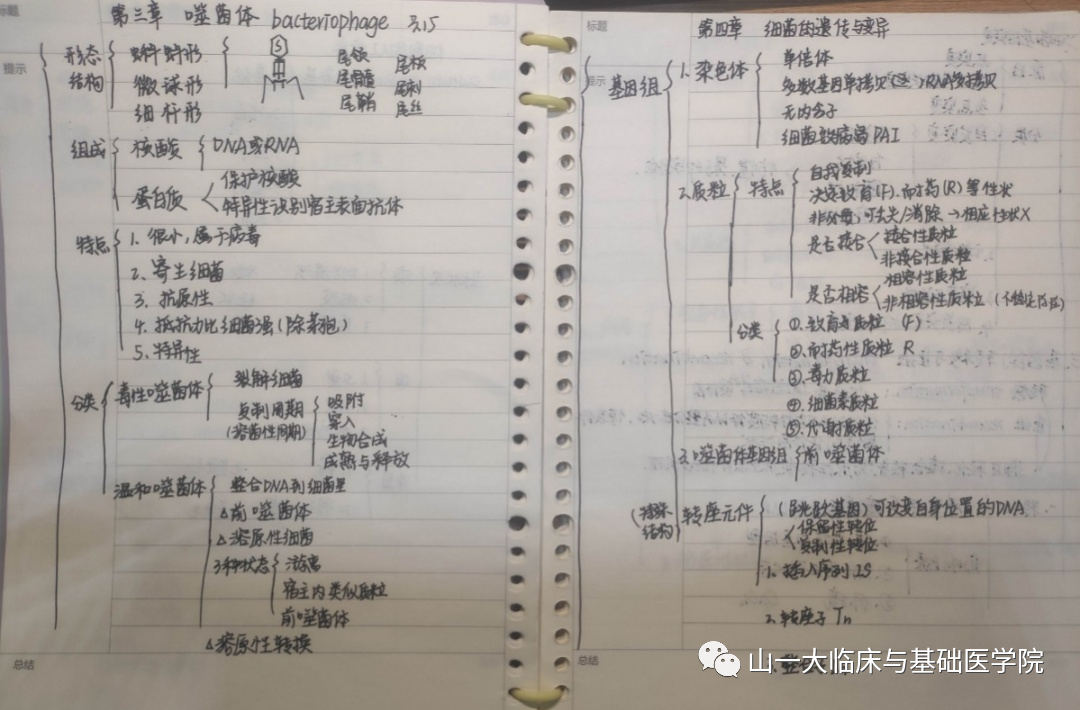 标题
第三章 噬菌体 bacteriophage 3.15
提示
形态结构
蝌蚪形
微球形
细杆形
尾领
尾髓
尾鞘
尾板
尾刺
尾丝
组成
核酸
DNA或RNA
蛋白质
保护核酸
特异性识别宿主表面抗体
特点
1. 很小,属于病毒
2、寄生细菌
3. 抗原性
4. 抵抗力比细菌强(除芽孢)
5. 特异性
分类
毒性噬菌体
裂解细菌
复制周期
(溶菌性周期)
吸附
穿入
生物合成
成熟与释放
温和噬菌体
整合DNA到细菌里
△前噬菌体
△溶原性细菌
3种状态
游离
宿主内类似质粒
前噬菌体
△溶原性转换
总结
标题
第四章 细菌的遗传与变异
基因组
1. 染色体
单倍体
多数基因单拷贝
rRNA多拷贝
无内含子
细菌致病岛PAI
2.质粒
特点
自我复制
决定致育(F).耐药(R)等性状
非必需,可丢失/消除→相应性状X
是否接合
接合性质粒
非接合性质粒
是否相容
相容性质粒
非相容性质粒
分类
①. 致育质粒 (F)
②.耐药性质粒 R
③.毒力质粒
④.细菌素质粒
⑤.代谢质粒
3.噬菌体基因组
前噬菌体
(特殊结构)
转座元件
(跳跃基因)可改变自身位置的DNA
保留性转位
复制性转位
1. 插入序列 IS
2. 转座子 Tn
总结
山一大临床与基础医学院